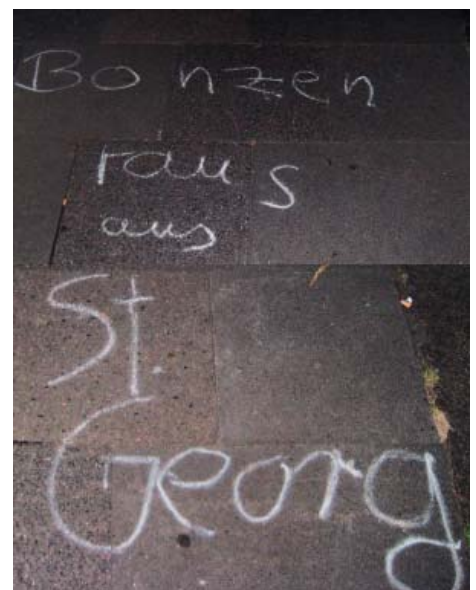 Bonzen
raus
aus
St.
Georg